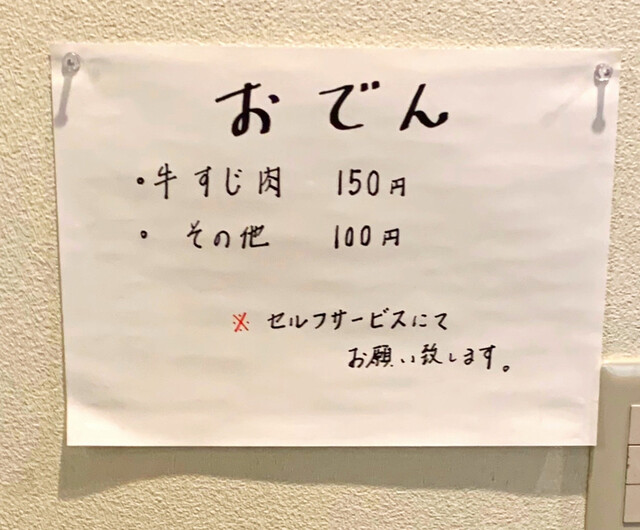 おでん
・牛すじ肉 150円
・その他 100円
※ セルフサービスにて
お願い致します。